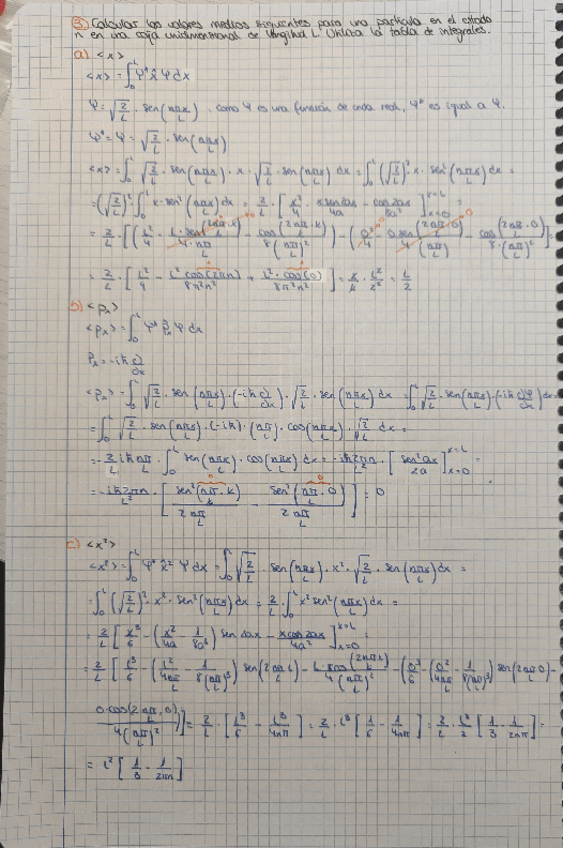 ③ Calcular los valores medios siguientes para una partícula en el estado
n en una caja unidimensional de longitud L. Utiliza la tabla de integrales.
a) <x>
<x> = ∫₀ᴸ Ψ* x̂ Ψ dx
Ψ = √(2/L) · sen(nπx/L). como Ψ es una función de onda real, Ψ* es igual a Ψ.
Ψ* = Ψ = √(2/L) · sen(nπx/L)
<x> = ∫₀ᴸ √(2/L) · sen(nπx/L) · x · √(2/L) · sen(nπx/L) dx = ∫₀ᴸ (√(2/L))² · x · sen²(nπx/L) dx =
= (√(2/L))² ∫₀ᴸ x · sen²(nπx/L) dx = 2/L · [x²/4 - x sen2ax/4a - cos2ax/8a²]ₓ₌₀ˣ⁼ᴸ =
= 2/L · [(L²/4 - L · sen(2nπ·L/L)/(4·nπ/L) - cos(2nπ·L/L)/(8(nπ/L)²)) - (0²/4 - 0·sen(2nπ·0/L)/(4(nπ/L)) - cos(2nπ·0/L)/(8·(nπ/L)²))] =
= 2/L · [L²/4 - L² cos(2πn)/8π²n² + L²·cos(0)/8π²n²] = 2/L · L²/2² = L/2
b) <pₓ>
<pₓ> = ∫₀ᴸ Ψ* p̂ₓ Ψ dx
p̂ₓ = -iħ d/dx
<pₓ> = ∫₀ᴸ √(2/L) · sen(nπx/L) · (-iħ d/dx) · √(2/L) · sen(nπx/L) dx = ∫₀ᴸ √(2/L) · sen(nπx/L) · (-iħ dΨ/dx) dx =
= ∫₀ᴸ √(2/L) · sen(nπx/L) · (-iħ) · (nπ/L) · cos(nπx/L) · √(2/L) dx =
= -2/L iħ nπ/L · ∫₀ᴸ sen(nπx/L) · cos(nπx/L) dx = -iħ2πn/L² · [sen²ax/2a]ₓ₌₀ˣ⁼ᴸ =
= -iħ2πn/L² · [sen²(nπ/L · L)/(2nπ/L) - sen²(nπ/L · 0)/(2nπ/L)] = 0
c) <x²>
<x²> = ∫₀ᴸ Ψ* x̂² Ψ dx = ∫₀ᴸ √(2/L) · sen(nπx/L) · x² · √(2/L) · sen(nπx/L) dx =
= ∫₀ᴸ (√(2/L))² · x² · sen²(nπx/L) dx = 2/L · ∫₀ᴸ x² sen²(nπx/L) dx =
= 2/L [x³/6 - (x²/4a - 1/8a³) sen 2ax - x cos2ax/4a²]ₓ₌₀ˣ⁼ᴸ =
= 2/L [L³/6 - (L²/(4nπ/L) - 1/(8(nπ/L)³)) sen(2nπL/L) - L·cos(2nπL/L)/(4(nπ/L)²) - (0³/6 - (0²/(4nπ/L) - 1/(8(nπ/L)³)) sen(2nπ0/L) -
0·cos(2nπ·0/L)/(4(nπ/L)²))] = 2/L · [L³/6 - L³/4nπ] = 2/L · L³ [1/6 - 1/4nπ] = 2/L · L³/2 [1/3 - 1/2nπ] =
= L² [1/3 - 1/2πn]